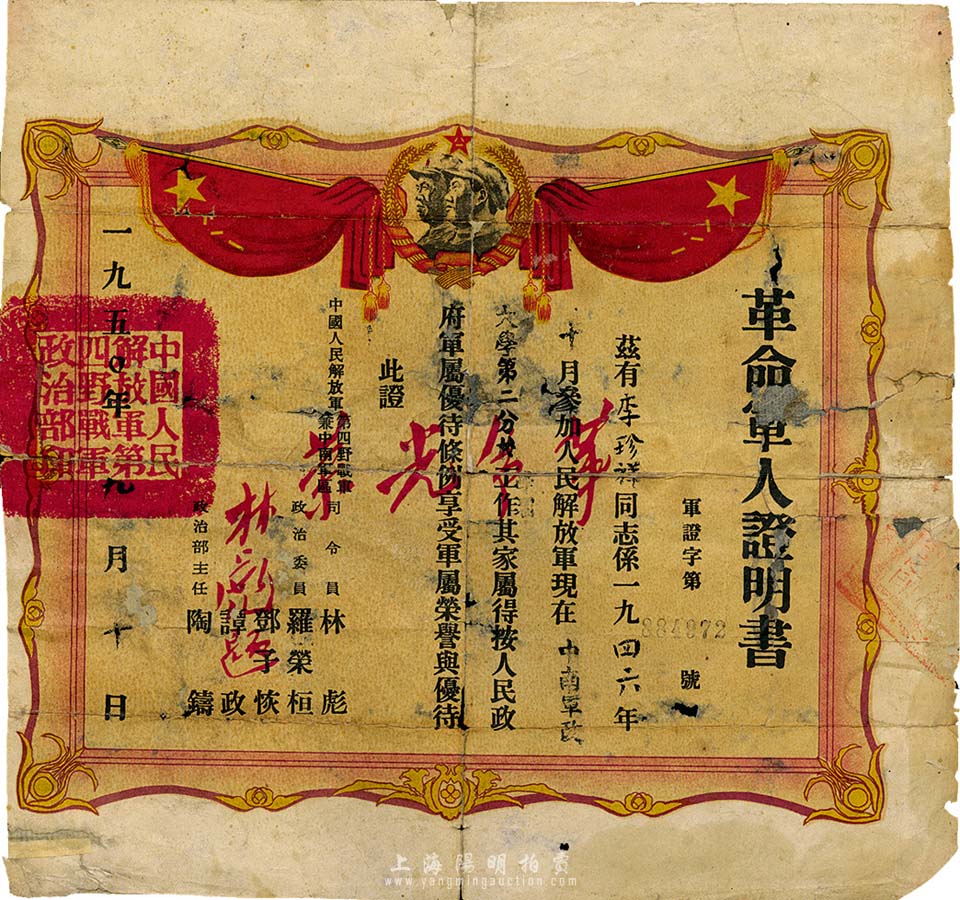 革命軍人證明書
軍證字第884972號
茲有李珍祥同志係一九四六年
十月參加人民解放軍現在中南軍政
大學第二分校工作其家屬得按人民政
府軍屬優待條例享受軍屬榮譽與優待
此證
革命光榮
林彪題
中國人民解放軍第四野戰軍兼中南軍區司令員林彪
政治委員羅榮桓
鄧子恢
譚政
政治部主任陶鑄
一九五〇年九月十日
中國人民解放軍第四野戰軍政治部印
上海陽明拍賣
www.yangmingauction.com